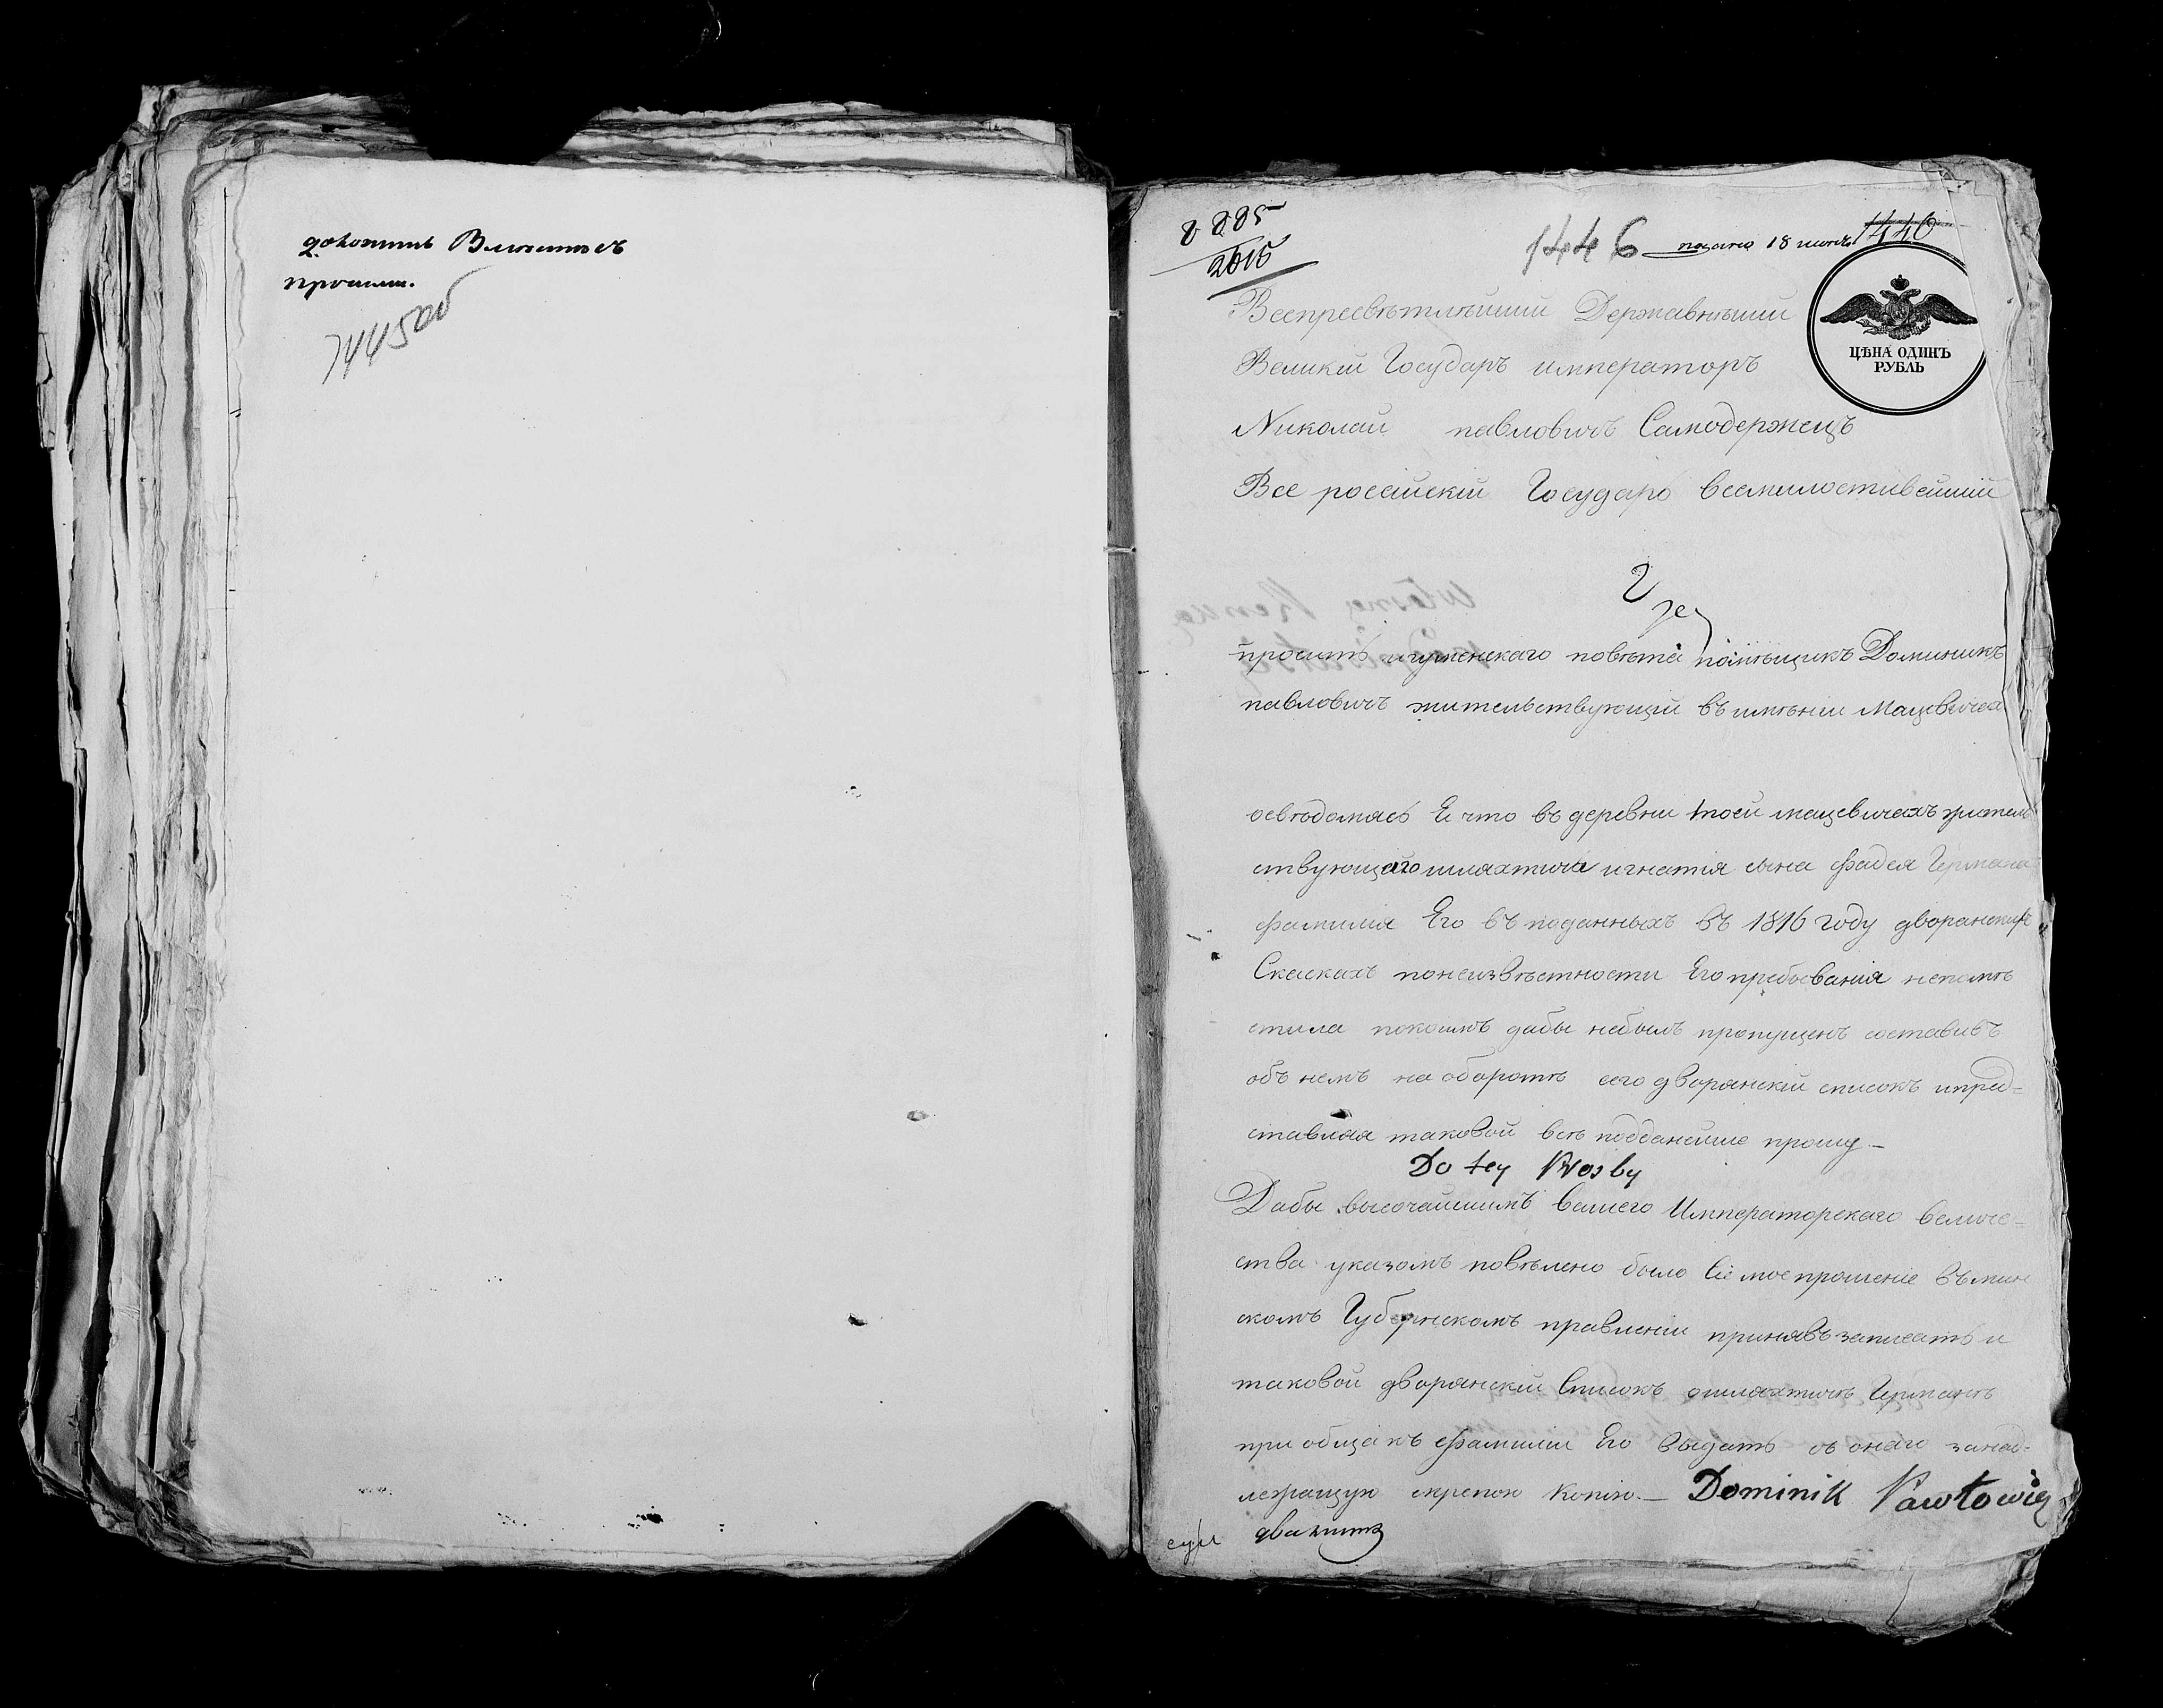 доложить
1445 об
8885
2615
1446 подано 18 1446
ЦѢНА ОДИНЪ
РУБЛЬ
Всепресвѣтлѣйший Державнѣший
Великій Государь императоръ
Николай павловичъ Самодержецъ
Все российскій Государ всемилостивейший
просить игуменскаго повѣта помѣщикъ Доминикъ
павловичъ жительствующій въ имѣнии Мацевичах
осведомясь Я что въ деревни моей мацевичахъ жителъ
ствующаго шляхтича игнатія сына фадея Германа
фамилія Его въ поданныхъ въ 1816 году дворанских
Сказкахъ по неизвѣстности Его пребывания непомѣ
стила дабы небылъ пропущенъ составивъ
объ немъ на оборотѣ сего дворянскій списокъ и пред-
ставляя таковой всѣ подданейше прошу –
Do tey Prosby
Дабы высочайшимъ вашего Императорскаго величе-
ства указомъ повѣлено было Сіе мое прошение въ мин
скомъ Губернскомъ правленіи принявъ записать и
таковой дворянскій Списокъ о шляхтичѣ Германѣ
приобща къ фамиліи Его выдать съ онаго занад-
лежащую скрепою копію. – Dominik Pawłowicz